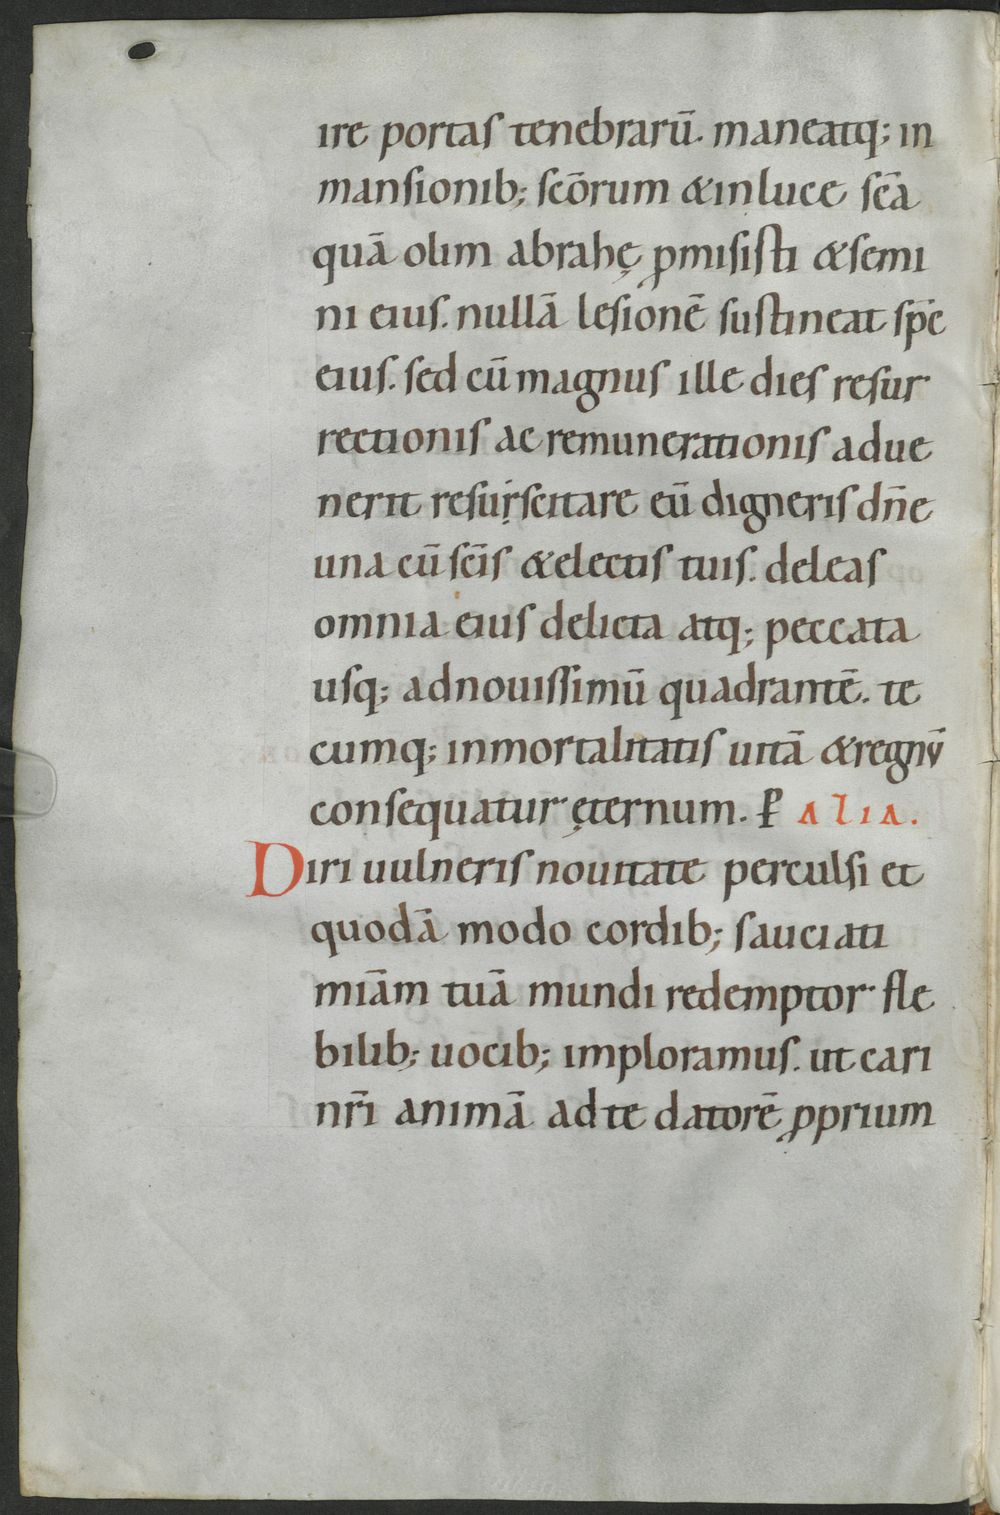 ire portas tenebrarū. maneatq; in
mansionib; scōrum & in luce scā
quā olim abrahę ꝓmisisti & semi
ni eius. nullā lesionē sustineat sp̄c
eius. sed cū magnus ille dies resur
rectionis ac remunerationis adue
nerit resurscitare eū digneris dn̄e
una cū scīs & electis tuis. deleas
omnia eius delicta atq; peccata
usq; ad nouissimū quadrantē. te
cumq; inmortalitatis uitā & regnū
consequatur ęternum. P̄ ALIA.
Diri uulneris nouitate perculsi et
quodā modo cordib; sauciati
miām tuā mundi redemptor fle
bilib; uocib; imploramus. ut cari
nr̄i animā ad te datorē ꝓprium